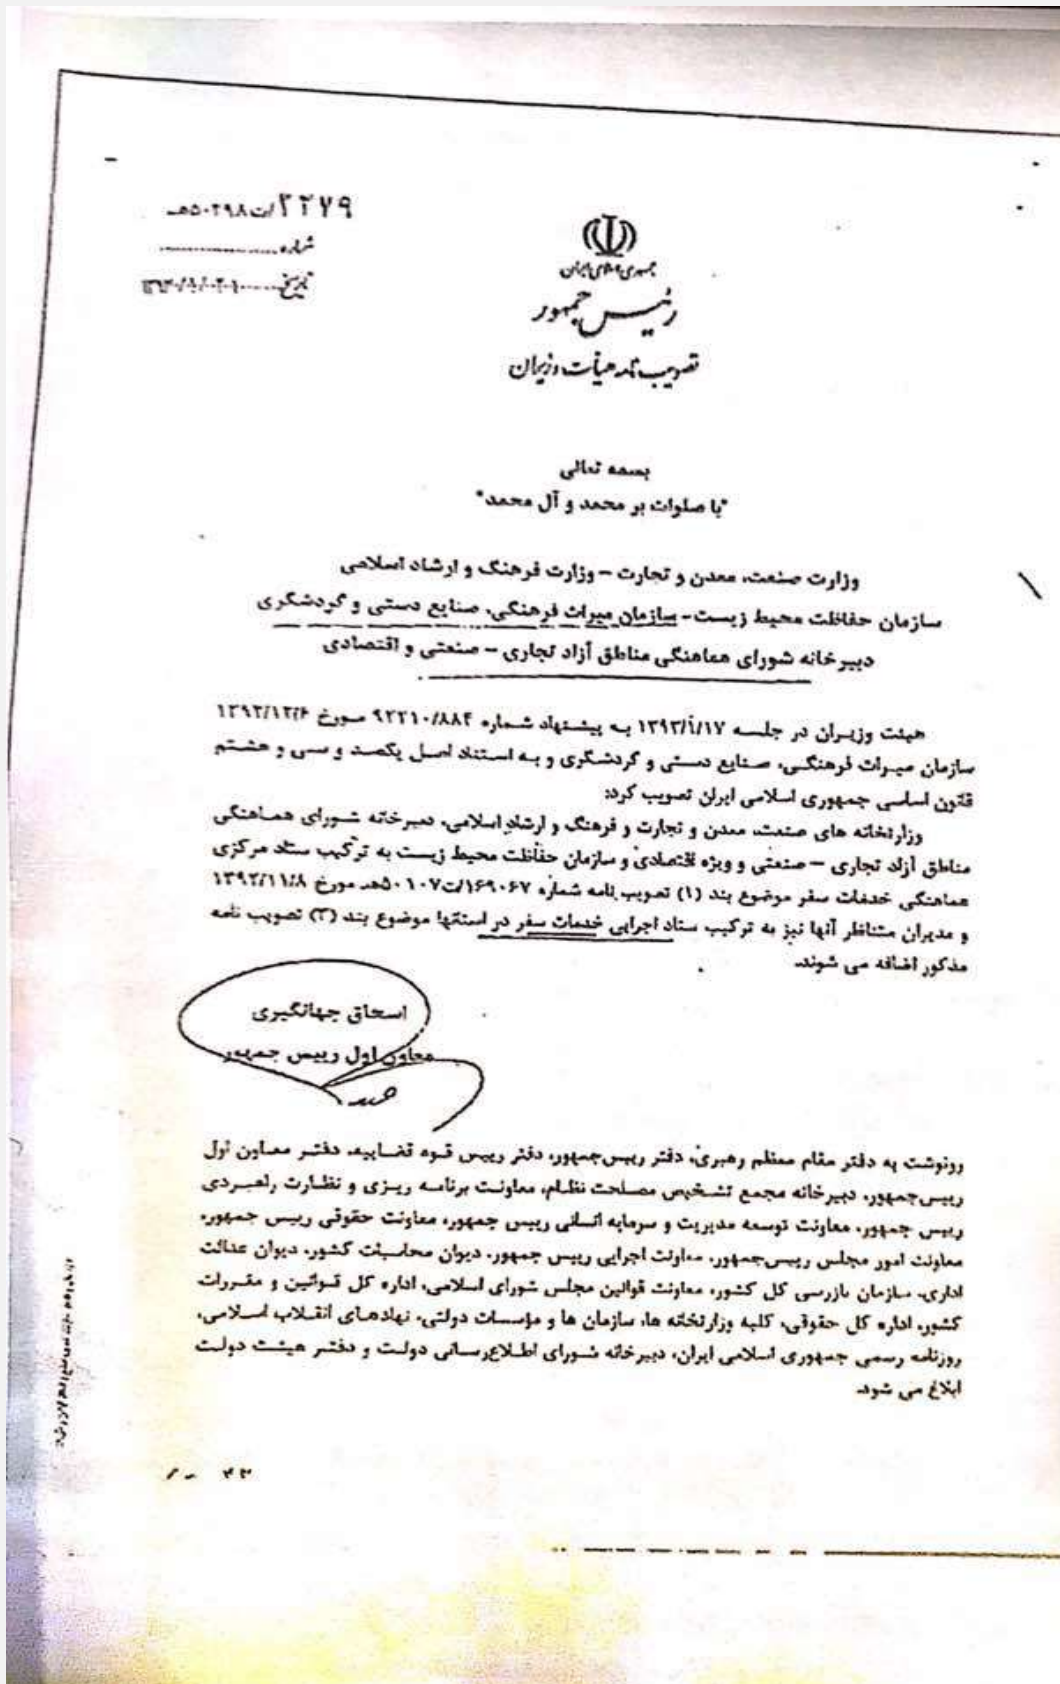 ۲۲۷۹/ت۵۰۲۹۸هـ
شماره
تاریخ
جمهوری اسلامی ایران
رئیس جمهور
تصویب نامه هیأت وزیران
بسمه تعالی
"با صلوات بر محمد و آل محمد"
وزارت صنعت، معدن و تجارت – وزارت فرهنگ و ارشاد اسلامی
سازمان حفاظت محیط زیست- سازمان میراث فرهنگی، صنایع دستی و گردشگری
دبیرخانه شورای هماهنگی مناطق آزاد تجاری – صنعتی و اقتصادی
هیئت وزیران در جلسه ۱۳۹۳/۱/۱۷ به پیشنهاد شماره ۹۲۲۱۰/۸۸۴ مورخ ۱۳۹۲/۱۲/۶
سازمان میراث فرهنگی، صنایع دستی و گردشگری و به استناد اصل یکصد و سی و هشتم
قانون اساسی جمهوری اسلامی ایران تصویب کرد:
وزارتخانه های صنعت، معدن و تجارت و فرهنگ و ارشاد اسلامی، دبیرخانه شورای هماهنگی
مناطق آزاد تجاری – صنعتی و ویژه اقتصادی و سازمان حفاظت محیط زیست به ترکیب ستاد مرکزی
هماهنگی خدمات سفر موضوع بند (۱) تصویب نامه شماره ۱۶۹۰۶۷/ت۵۰۱۰۷هـ مورخ ۱۳۹۲/۱۱/۸
و مدیران متناظر آنها نیز به ترکیب ستاد اجرایی خدمات سفر در استانها موضوع بند (۳) تصویب نامه
مذکور اضافه می شوند.
اسحاق جهانگیری
معاون اول رییس جمهور
رونوشت به دفتر مقام معظم رهبری، دفتر رییس‌جمهور، دفتر رییس قوه قضاییه، دفتر معاون اول
رییس‌جمهور، دبیرخانه مجمع تشخیص مصلحت نظام، معاونت برنامه ریزی و نظارت راهبردی
رییس جمهور، معاونت توسعه مدیریت و سرمایه انسانی رییس جمهور، معاونت حقوقی رییس جمهور،
معاونت امور مجلس رییس‌جمهور، معاونت اجرایی رییس جمهور، دیوان محاسبات کشور، دیوان عدالت
اداری، سازمان بازرسی کل کشور، معاونت قوانین مجلس شورای اسلامی، اداره کل قوانین و مقررات
کشور، اداره کل حقوقی، کلیه وزارتخانه ها، سازمان ها و مؤسسات دولتی، نهادهای انقلاب اسلامی،
روزنامه رسمی جمهوری اسلامی ایران، دبیرخانه شورای اطلاع‌رسانی دولت و دفتر هیئت دولت
ابلاغ می شود.